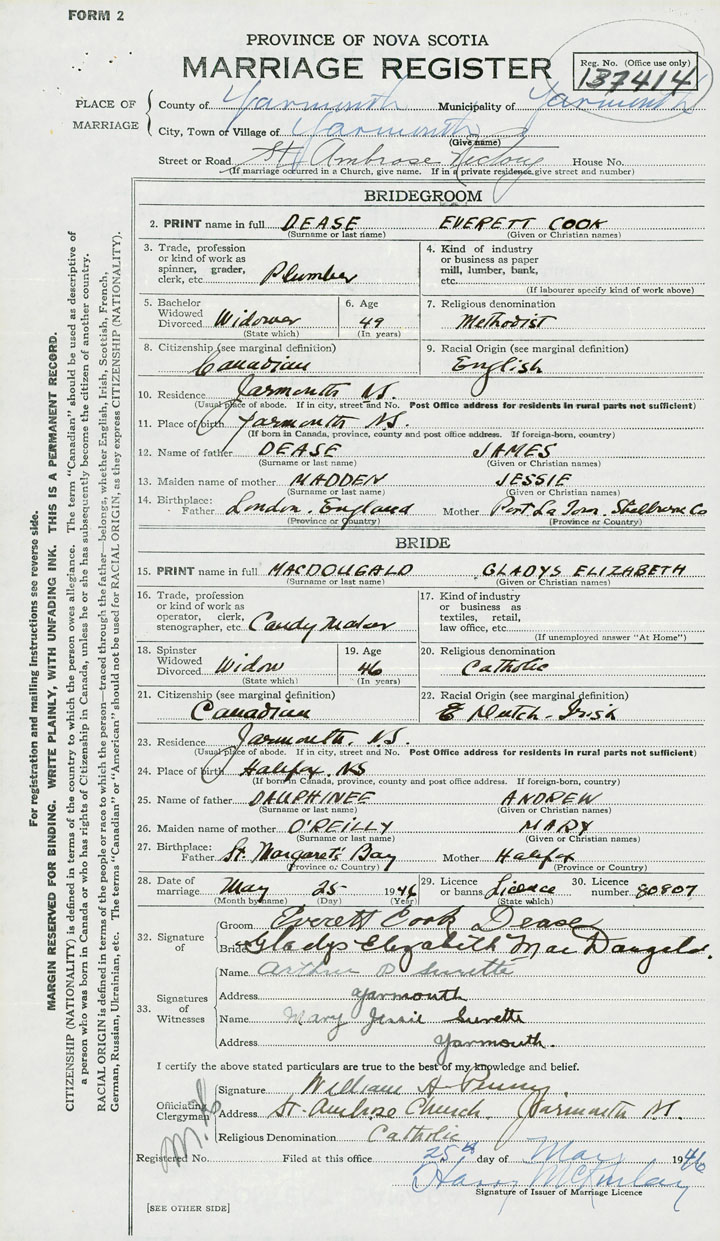 FORM 2
PROVINCE OF NOVA SCOTIA
MARRIAGE REGISTER
Reg. No. (Office use only)
137414
PLACE OF MARRIAGE
County of Yarmouth Municipality of Yarmouth
City, Town or Village of Yarmouth
(Give name)
Street or Road St. Ambrose Rectory House No.
(If marriage occurred in a Church, give name. If in a private residence, give street and number)
BRIDEGROOM
2. PRINT name in full DEASE EVERETT COOK
(Surname or last name) (Given or Christian names)
3. Trade, profession or kind of work as spinner, grader, clerk, etc. Plumber
4. Kind of industry or business as paper mill, lumber, bank, etc.
(If labourer specify kind of work above)
5. Bachelor Widowed Divorced Widower (State which)
6. Age 49 (In years)
7. Religious denomination Methodist
8. Citizenship (see marginal definition) Canadian
9. Racial Origin (see marginal definition) English
10. Residence Yarmouth N.S.
(Usual place of abode. If in city, street and No. Post Office address for residents in rural parts not sufficient)
11. Place of birth Yarmouth N.S.
(If born in Canada, province, county and post office address. If foreign-born, country)
12. Name of father DEASE JAMES
(Surname or last name) (Given or Christian names)
13. Maiden name of mother MADDEN JESSIE
(Surname or last name) (Given or Christian names)
14. Birthplace: Father London. England Mother Port La Tour. Shelburne Co
(Province or Country) (Province or Country)
BRIDE
15. PRINT name in full MACDOUGALD GLADYS ELIZABETH
(Surname or last name) (Given or Christian names)
16. Trade, profession or kind of work as operator, clerk, stenographer, etc. Candy Maker
17. Kind of industry or business as textiles, retail, law office, etc.
(If unemployed answer "At Home")
18. Spinster Widowed Divorced Widow (State which)
19. Age 46 (In years)
20. Religious denomination Catholic
21. Citizenship (see marginal definition) Canadian
22. Racial Origin (see marginal definition) Dutch-Irish
23. Residence Yarmouth, N.S.
(Usual place of abode. If in city, street and No. Post Office address for residents in rural parts not sufficient)
24. Place of birth Halifax. NS
(If born in Canada, province, county and post office address. If foreign-born, country)
25. Name of father DAUPHINEE ANDREW
(Surname or last name) (Given or Christian names)
26. Maiden name of mother O'REILLY MARY
(Surname or last name) (Given or Christian names)
27. Birthplace: Father St. Margaret's Bay Mother Halifax
(Province or Country) (Province or Country)
28. Date of marriage May 25 1946
(Month by name) (Day) (Year)
29. Licence or banns Licence (State which)
30. Licence number 80807
32. Signature of
Groom Everett Cook Dease
Bride Gladys Elizabeth MacDougald.
33. Signatures of Witnesses
Name Arthur P Surette
Address Yarmouth
Name Mary Jessie Surette
Address Yarmouth.
I certify the above stated particulars are true to the best of my knowledge and belief.
Officiating Clergyman
Signature William A Penny.
Address St. Ambrose Church, Yarmouth N.S.
Religious Denomination Catholic
Registered No. Filed at this office 25th day of May 1946
Harry McKinlay
Signature of Issuer of Marriage Licence
[SEE OTHER SIDE]
For registration and mailing instructions see reverse side.
MARGIN RESERVED FOR BINDING. WRITE PLAINLY, WITH UNFADING INK. THIS IS A PERMANENT RECORD.
CITIZENSHIP (NATIONALITY) is defined in terms of the country to which the person owes allegiance. The term "Canadian" should be used as descriptive of
a person who was born in Canada or who has rights of Citizenship in Canada, unless he or she has subsequently become the citizen of another country.
RACIAL ORIGIN is defined in terms of the people or race to which the person—traced through the father—belongs, whether English, Irish, Scottish, French,
German, Russian, Ukrainian, etc. The terms "Canadian" or "American" should not be used for RACIAL ORIGIN, as they express CITIZENSHIP (NATIONALITY).